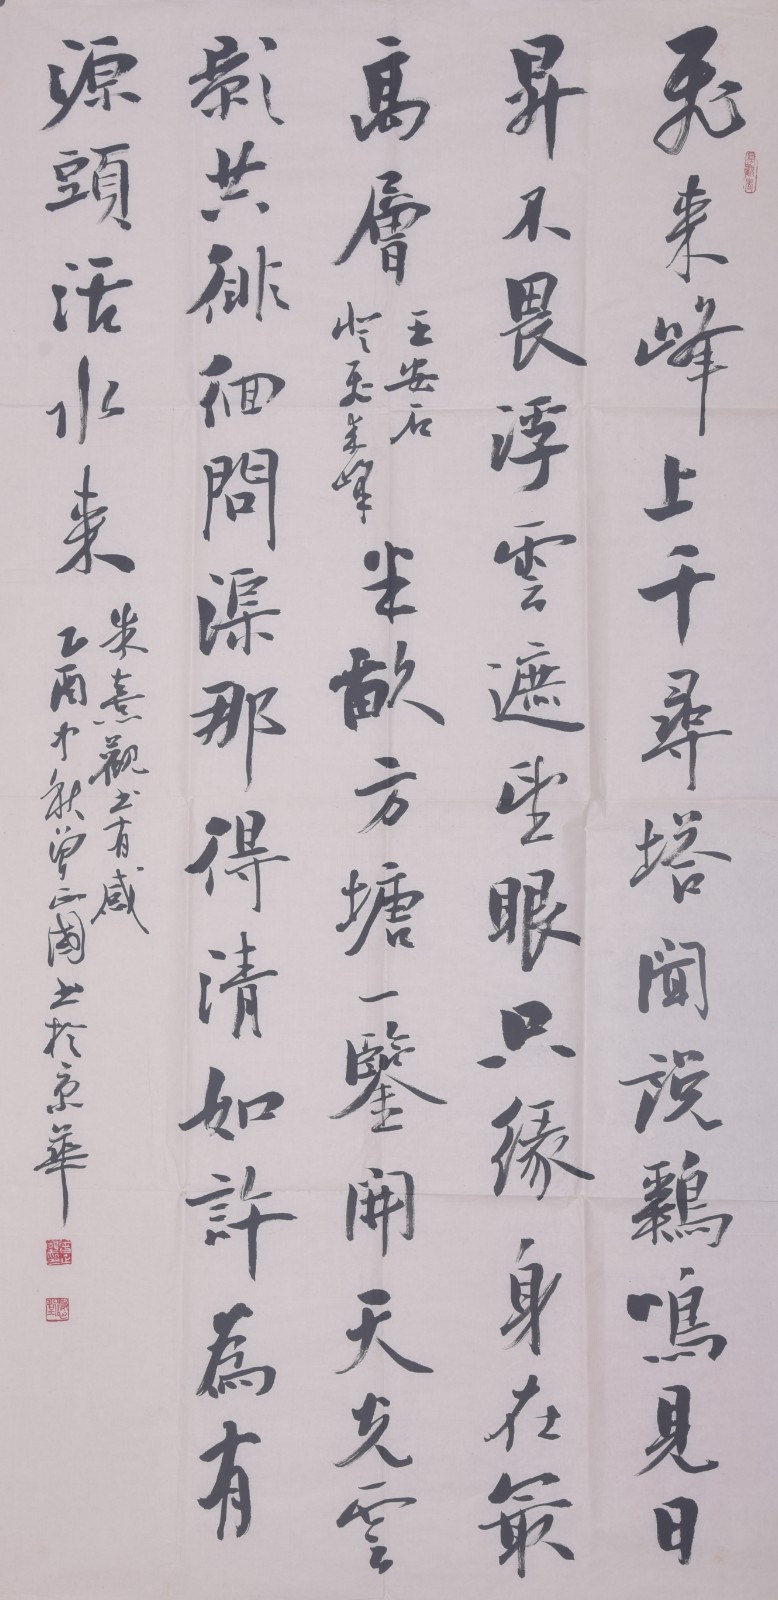 飛来峰上千尋塔聞説鷄鳴見日
昇不畏浮雲遮望眼只緣身在最
高層
王安石
登飛来峰
半畝方塘一鑒開天光雲
影共徘徊問渠那得清如許為有
源頭活水来
朱熹觀书有感
乙酉中秋曾正國书於京華